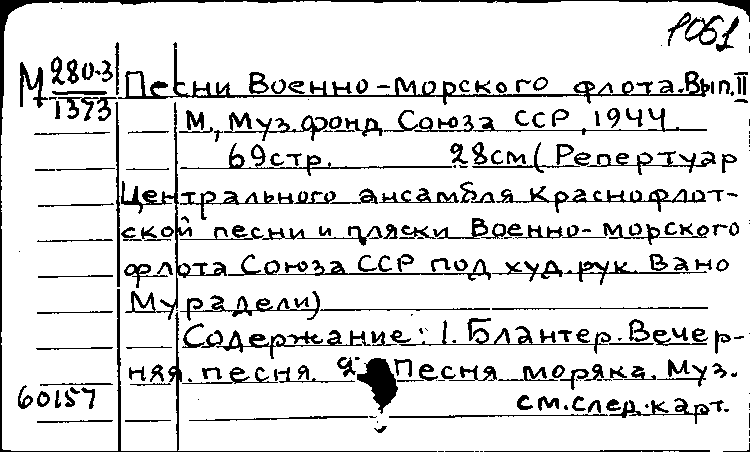 1061
М 280-3
1373
Песни Военно-морского флота. Вып. II
М., Муз. фонд Союза ССР, 1944.
69стр. 28см (Репертуар
Центрального ансамбля краснофлот-
ской песни и пляски Военно-морского
флота Союза ССР под худ. рук. Вано
Мурадели)
Содержание: 1. Блантер. Вечер-
няя песня. 2. Песня моряка. Муз.
60157
см. след. карт.